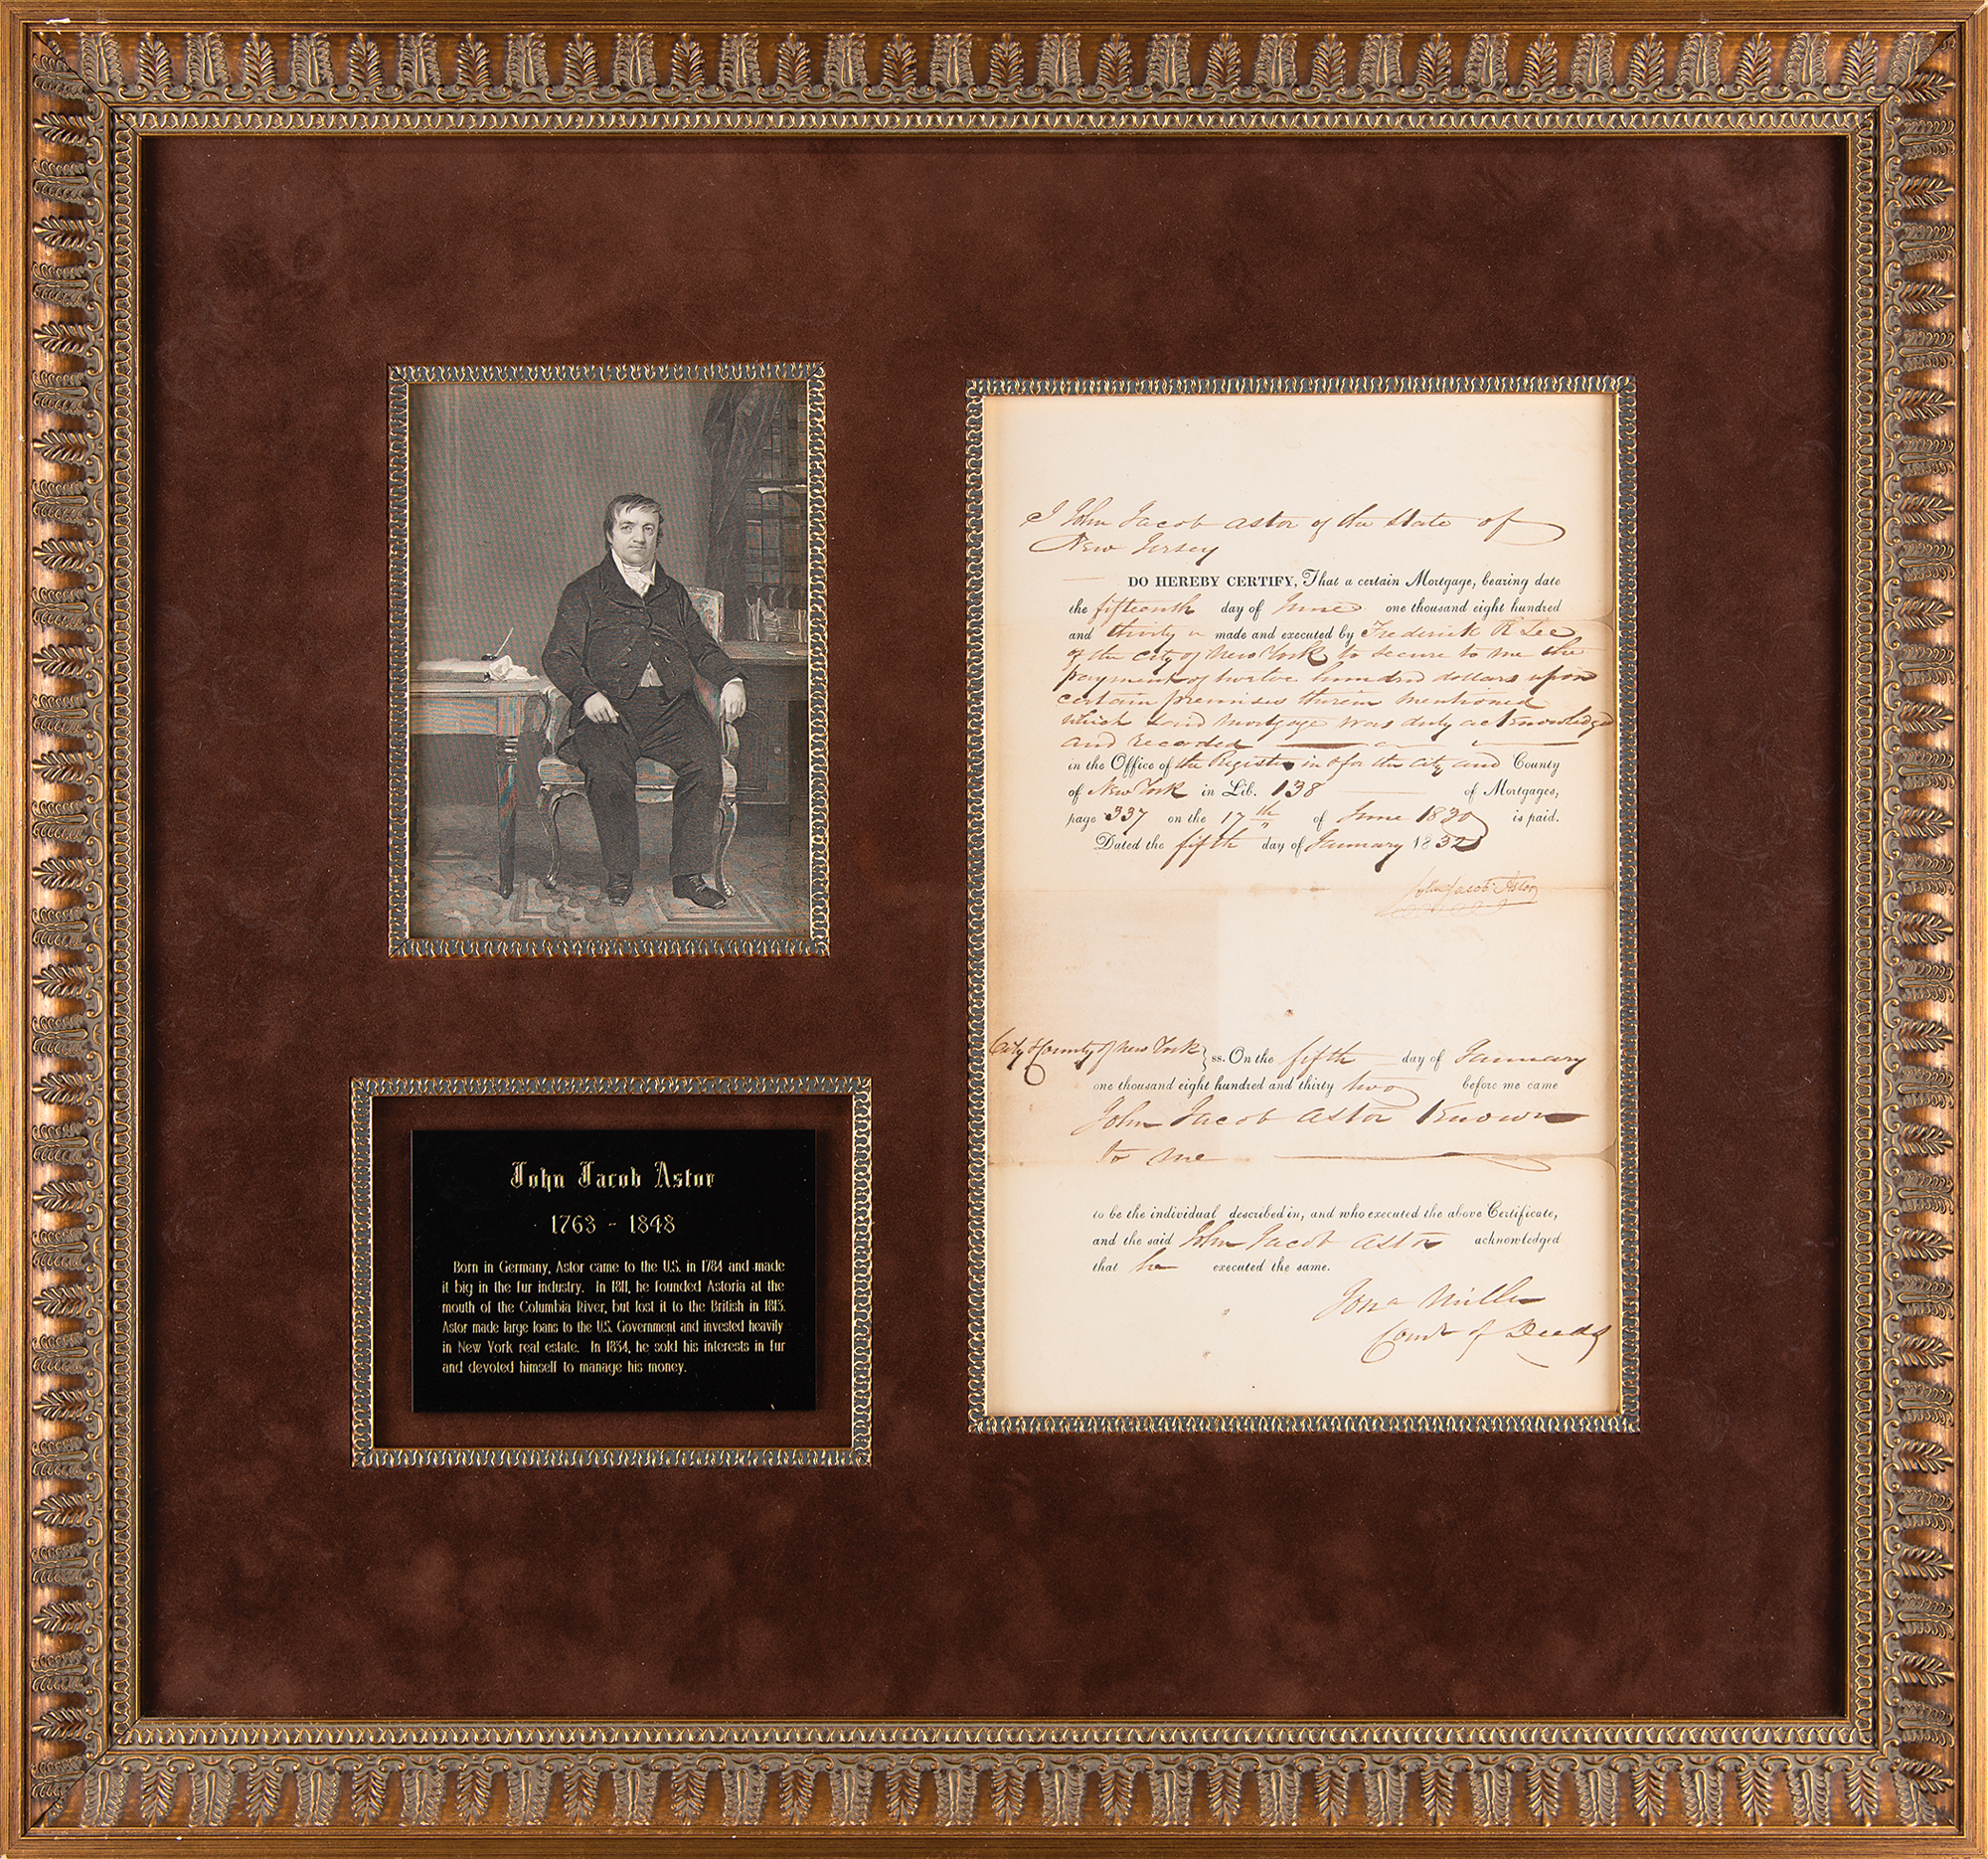 John Jacob Astor
1763 - 1848
Born in Germany, Astor came to the U.S. in 1784 and made
it big in the fur industry. In 1811, he founded Astoria at the
mouth of the Columbia River, but lost it to the British in 1813.
Astor made large loans to the U.S. Government and invested heavily
in New York real estate. In 1834, he sold his interests in fur
and devoted himself to manage his money.
I John Jacob Astor of the State of
New Jersey
DO HEREBY CERTIFY, That a certain Mortgage, bearing date
the fifteenth day of June one thousand eight hundred
and thirty made and executed by Frederick R Lee
of the City of New York to secure to me the
payment of twelve hundred dollars upon
certain premises therein mentioned
which said mortgage was duly acknowledged
and recorded
in the Office of the Register in & for the City and County
of New York in Lib. 138 of Mortgages,
page 337 on the 17th of June 1830 is paid.
Dated the fifth day of January 1832
John Jacob Astor
City & County of New York } ss. On the fifth day of January
one thousand eight hundred and thirty two before me came
John Jacob Astor Known
to me
to be the individual described in, and who executed the above Certificate,
and the said John Jacob Astor acknowledged
that he executed the same.
Jona Miller
Comr of Deeds